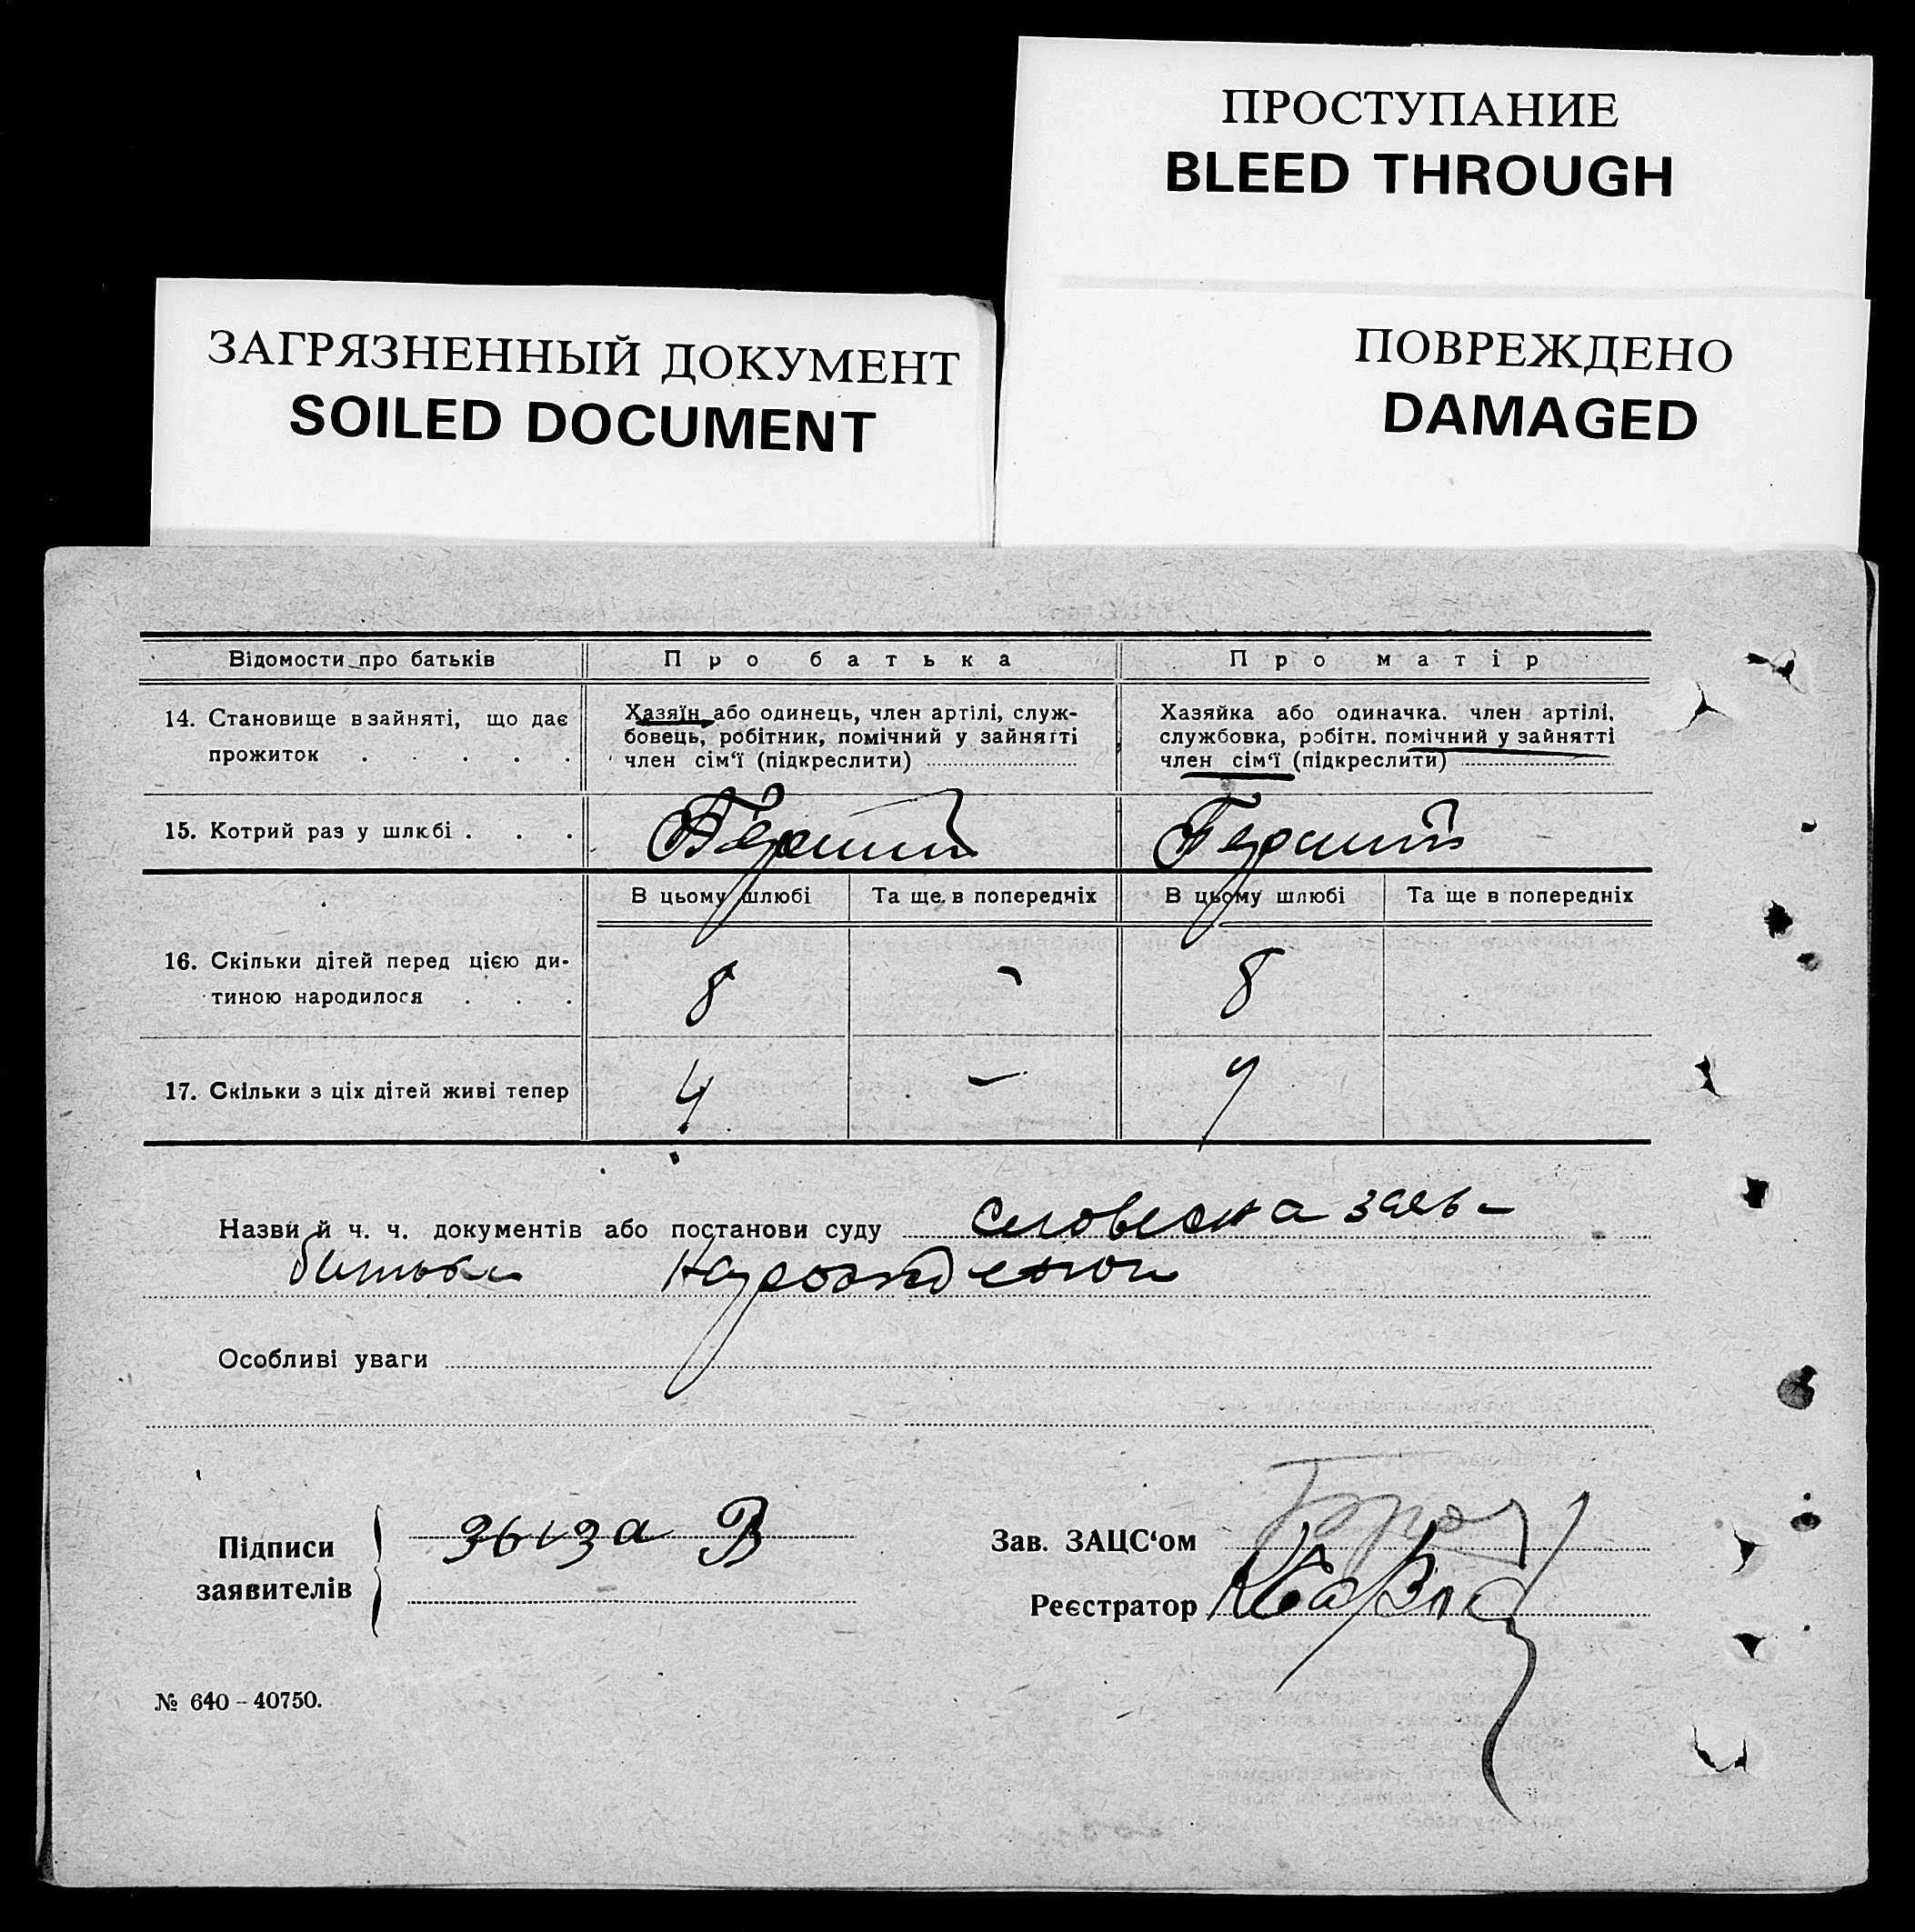 ПРОСТУПАНИЕ
BLEED THROUGH
ЗАГРЯЗНЕННЫЙ ДОКУМЕНТ
SOILED DOCUMENT
ПОВРЕЖДЕНО
DAMAGED
Відомости про батьків Про батька Про матір
14. Становище в зайняті, що дає
прожиток . . . . .
Хазяїн або одинець, член артілі, служ-
бовець, робітник, помічний у зайнятті
член сім‘ї (підкреслити)
Хазяйка або одиначка. член артілі,
службовка, робітн. помічний у зайнятті
член сім‘ї (підкреслити)
15. Котрий раз у шлюбі . . . Перший Перший
В цьому шлюбі Та ще в попередніх В цьому шлюбі Та ще в попередніх
16. Скільки дітей перед цією ди-
тиною народилося . . . 8 - 8
17. Скільки з ціх дітей живі тепер 4 - 4
Назви й ч. ч. документів або постанови суду словесна заяв-
батька
Особливі уваги
Підписи
заявителів
Зав. ЗАЦС‘ом
Реєстратор
№ 640 - 40750.